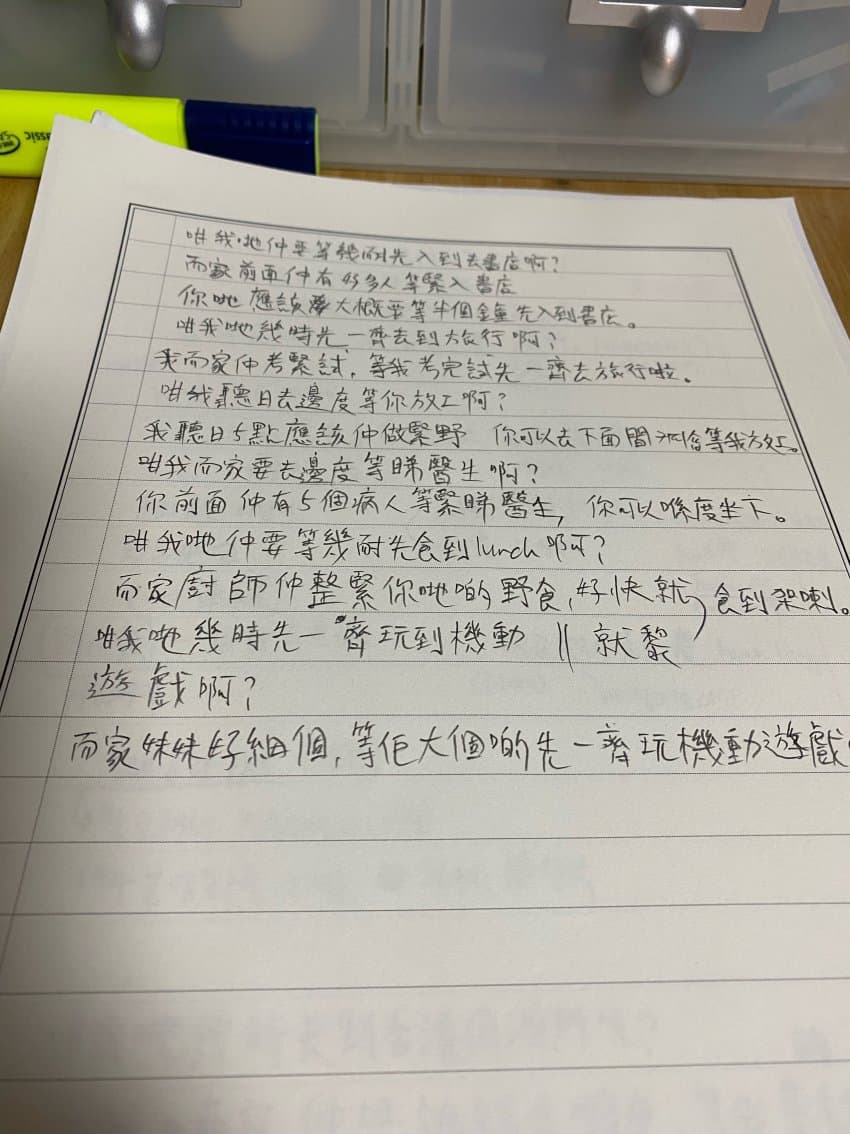 assic
咁我哋仲要等幾耐先入到去書店啊?
而家前面仲有好多人等緊入書店
你哋應該大概要等半個鐘先入到書店。
咁我哋幾時先一齊去到旅行啊?
我而家仲考緊試,等我考完試先一齊去旅行啦。
咁我聽日去邊度等你放工啊?
我聽日5點應該仲做緊野 你可以去下面間等我放工。
咁我而家要去邊度等睇醫生啊?
你前面仲有5個病人等緊睇醫生,你可以喺度坐下。
咁我哋仲要等幾耐先食到lunch啊?
而家廚師仲整緊你哋啲野食,好快就食到架喇。
咁我哋幾時先一齊玩到機動 || 就黎
遊戲啊?
而家妹妹好細個,等佢大個啲先一齊玩機動遊戲